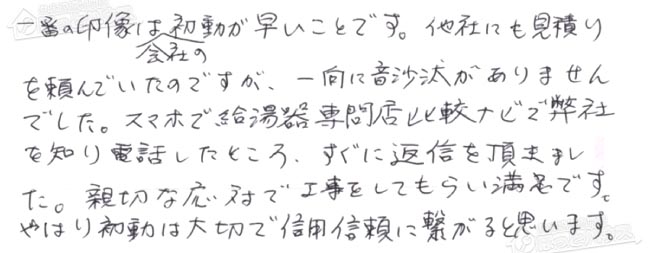 一番の印像は会社の初動が早いことです。他社にも見積り
を頼んでいたのですが、一向に音沙汰がありません
でした。スマホで給湯器専門店比較ナビで弊社
を知り電話したところ、すぐに返信を頂きまし
た。親切な応対で工事をしてもらい満足です。
やはり初動は大切で信用信頼に繋がると思います。